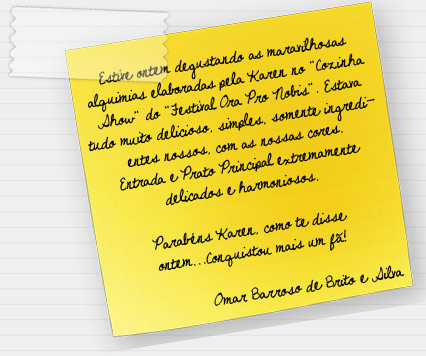 Estive ontem degustando as maravilhosas
alquimias elaboradas pela Karen no "Cozinha
Show" do "Festival Ora Pro Nobis". Estava
tudo muito delicioso, simples, somente ingredi-
entes nossos, com as nossas cores.
Entrada e Prato Principal extremamente
delicados e harmoniosos.
Parabéns Karen, como te disse
ontem...Conquistou mais um fã!
Omar Barroso de Brito e Silva